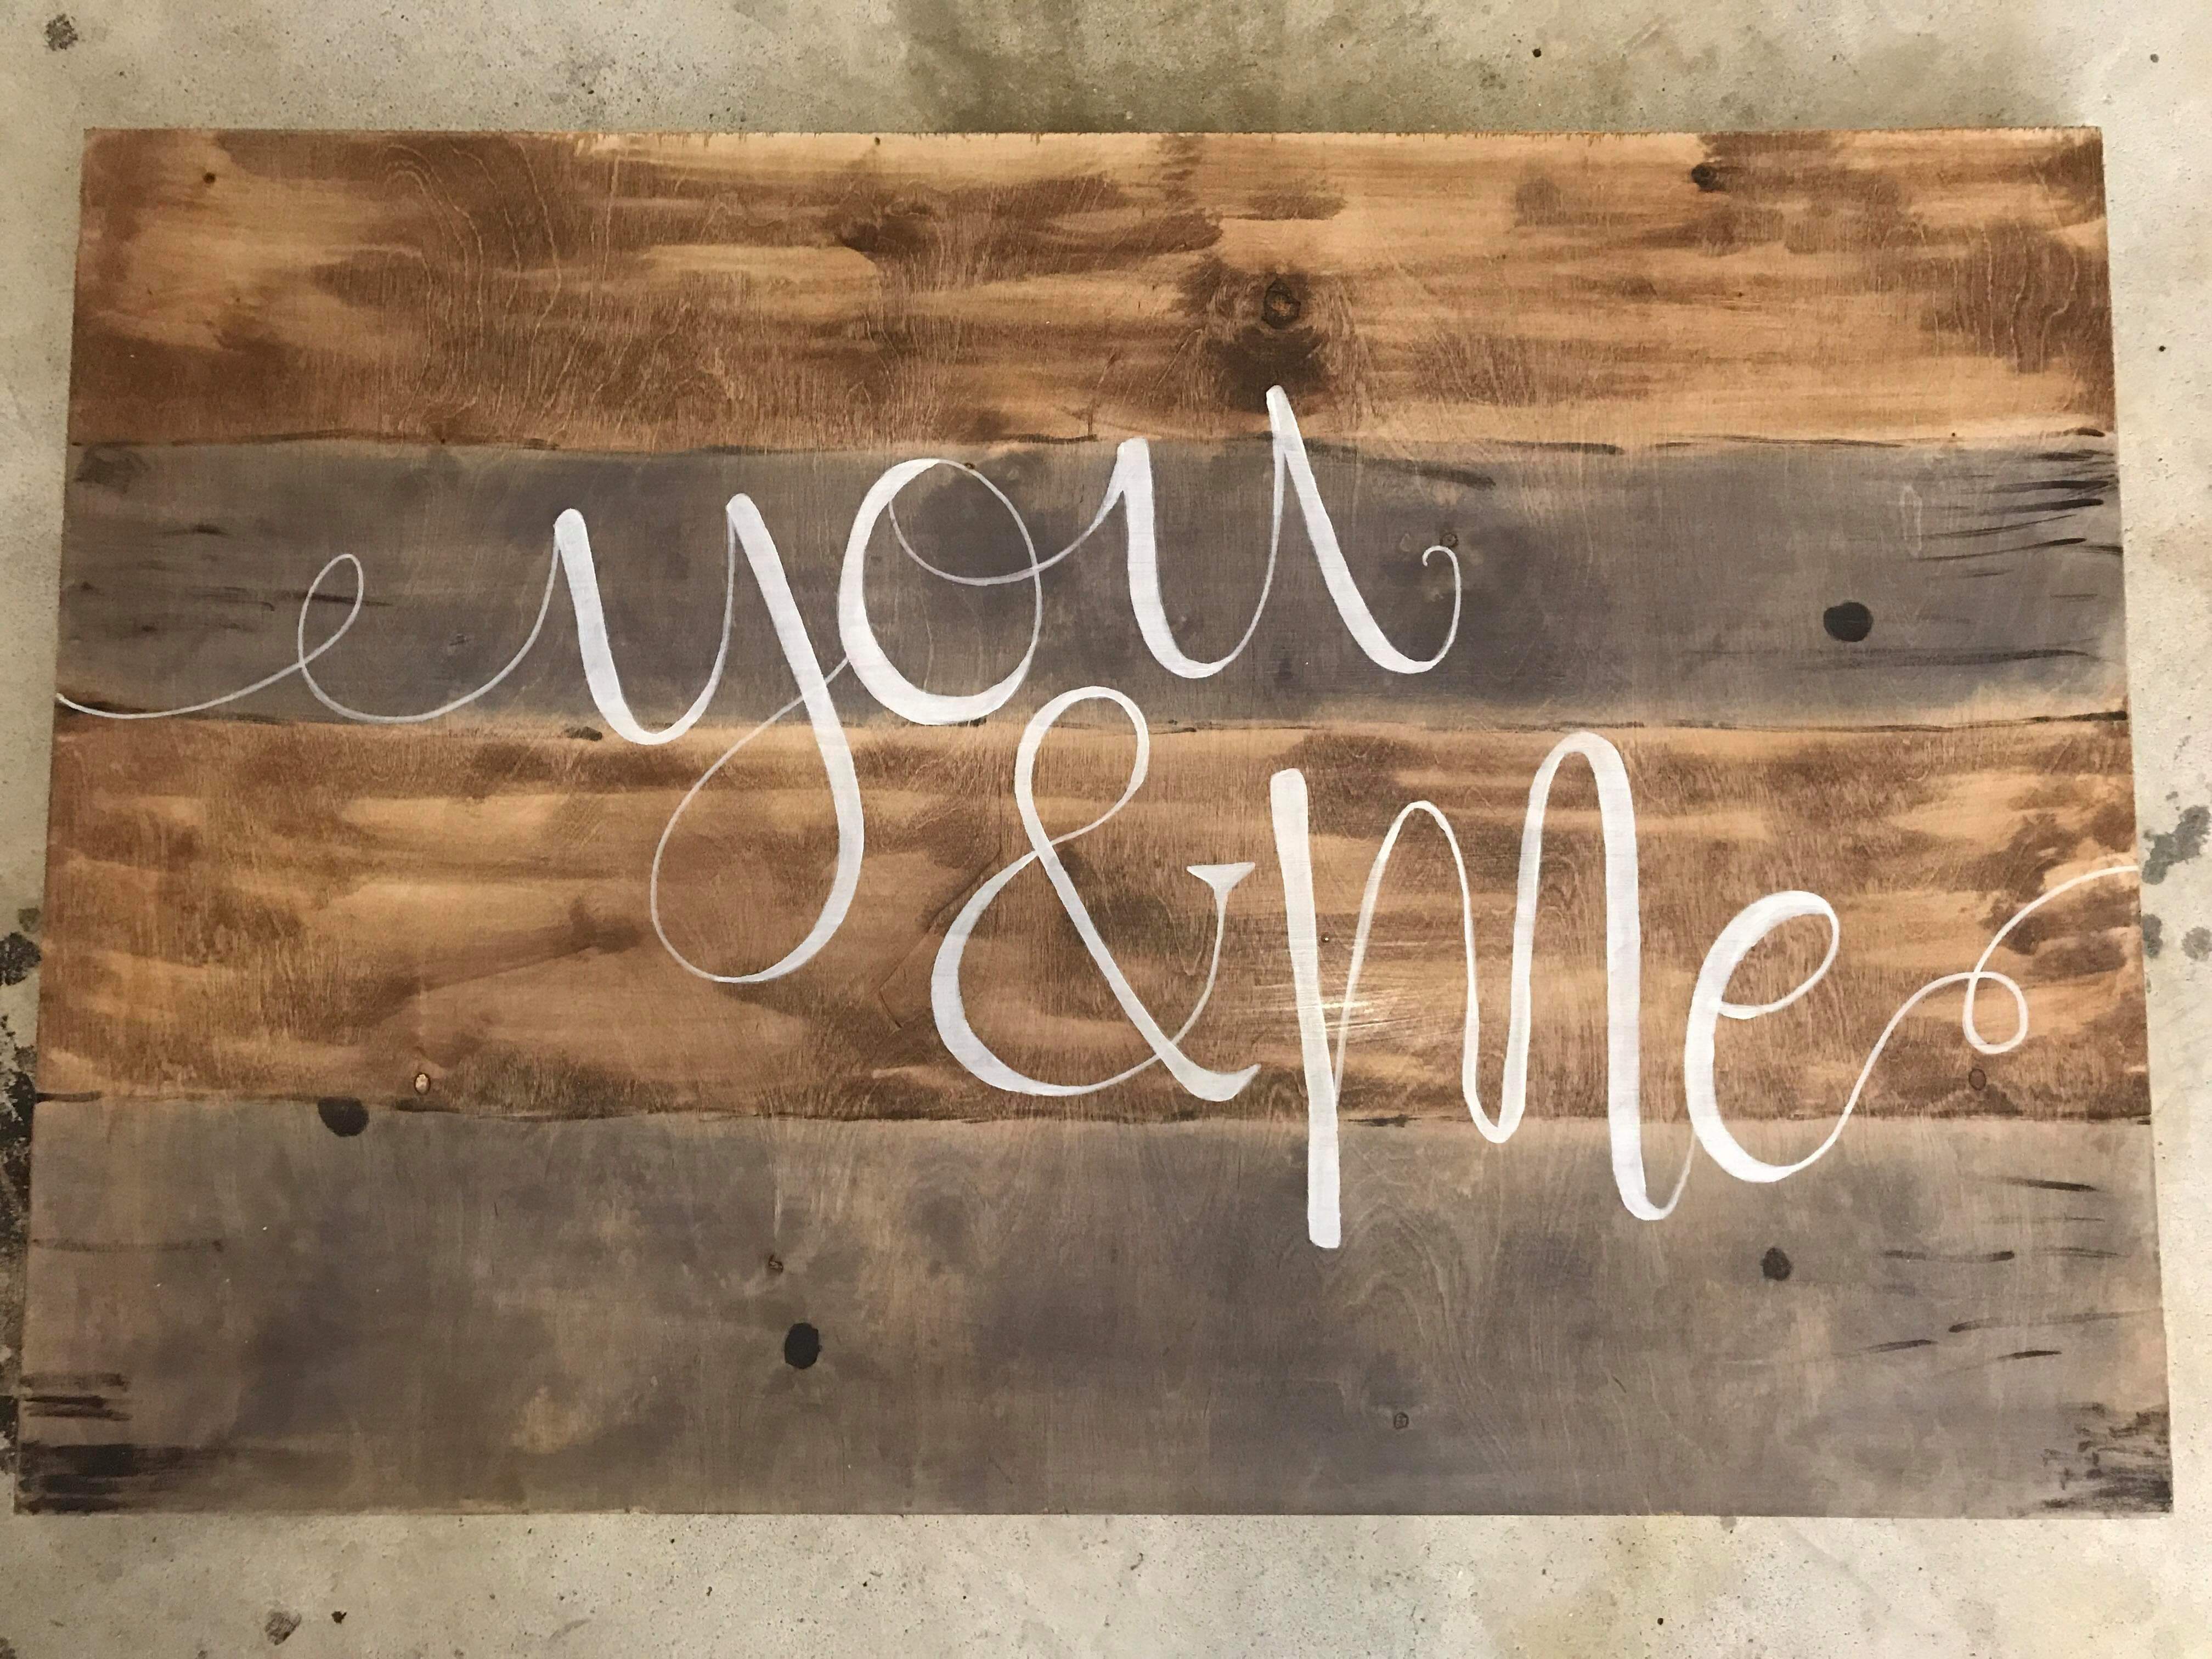 you
& Me